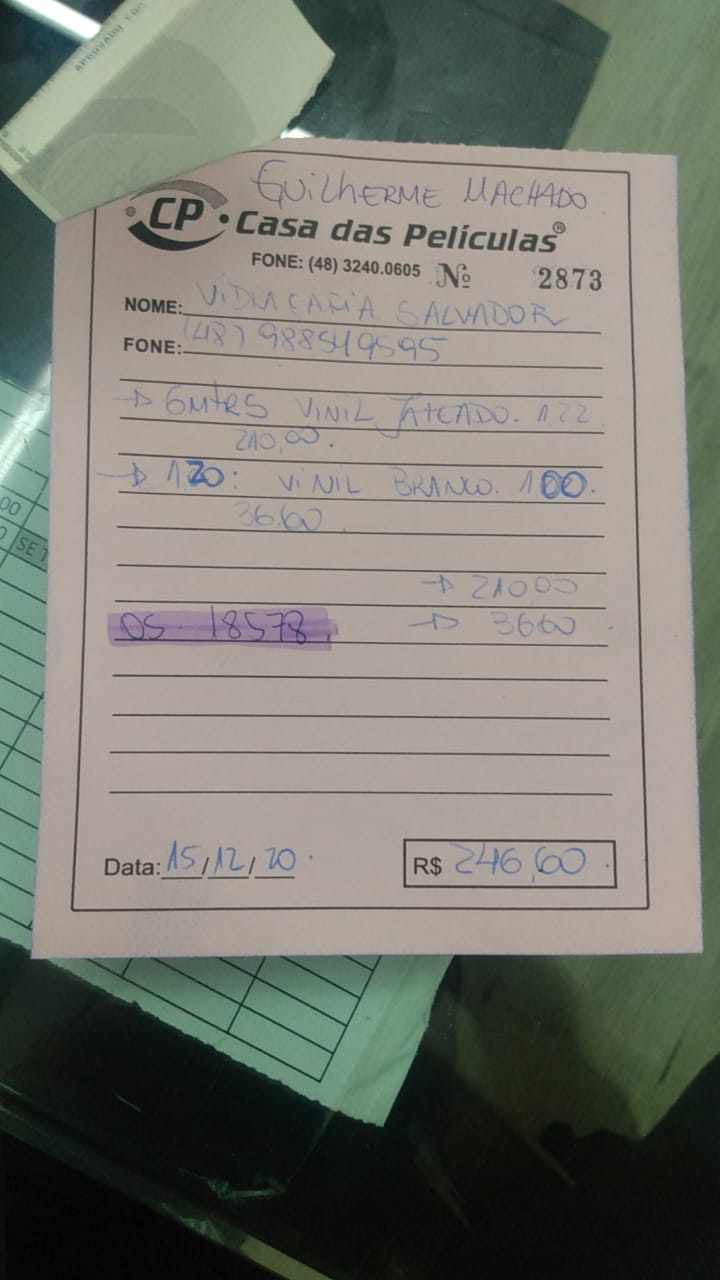 APROVADO COM
GUILHERME MACHADO
CP • Casa das Películas®
FONE: (48) 3240.0605 Nº 2873
NOME: VIDRAÇARIA SALVADOR
FONE: (48) 988549595
→ 6MTRS VINIL JATEADO. 1.22
210,00.
→ 1,20: VINIL BRANCO. 100.
36.60
→ 210,00
OS. 18578. → 36.60
Data: 15/12/20
R$ 246,60.
00
0 SET